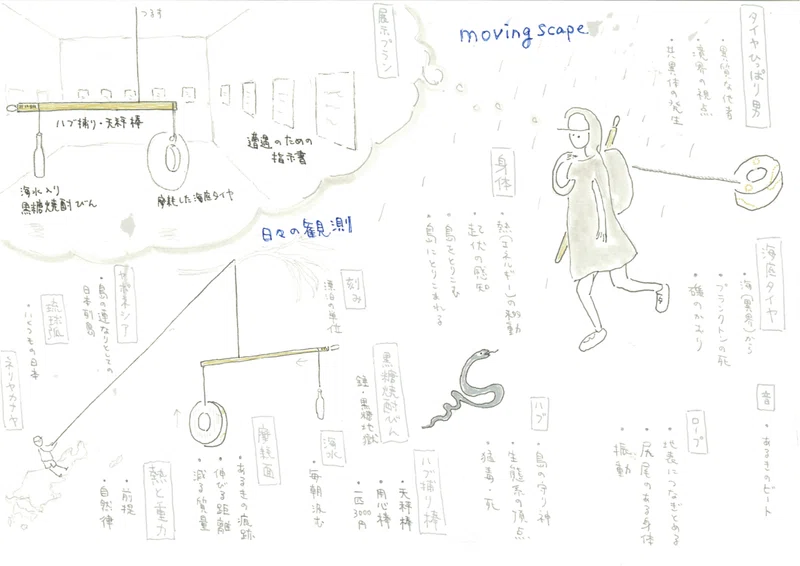 moving scape.
タイヤひっぱり男
・異質な他者
・境界の視点
・共異体の発生
海底タイヤ
・海(異界)から
・プランクトンの死
・磯のかおり
身体
・熱(エネルギー)の移動
・起伏の感知
・島をとりこむ
・島にとりこまれる
音
・あるきのビート
ロープ
・地表につなぎとめる
・尻尾のある身体
・振動
ハブ
・島の守り神
・生態系の頂点
・猛毒・死
展示プラン
つるす
ハブ捕り・天秤棒
海水入り
黒糖焼酎びん
摩耗した海底タイヤ
遭遇のための
指示書
日々の観測
刻み
漂泊の単位
黒糖焼酎びん
鎮・黒糖地獄
ハブ捕り棒
・天秤棒
・用心棒
・一匹3000円
海水
・毎朝汲む
摩耗面
・あるきの痕跡
・伸びる距離
・減る質量
熱と重力
・前提
・自然律
・島の連なりとしての
日本列島
琉球弧
・いくつもの日本
ネリヤカナヤ